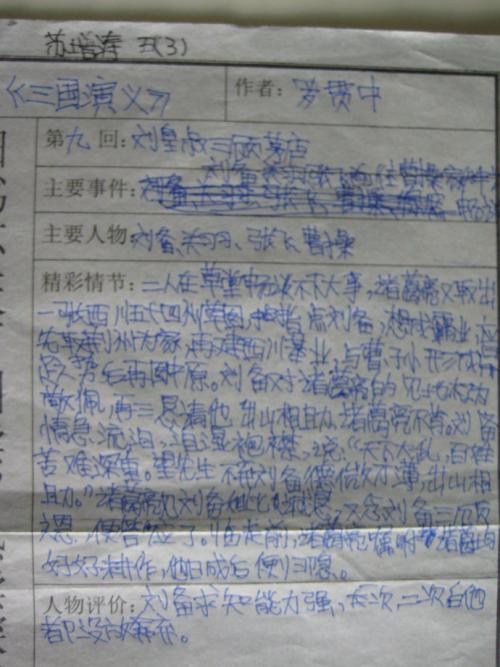 苏增涛 五(3)
《三国演义》 作者: 罗贯中
第九回: 刘皇叔三顾茅店
主要事件: 刘备
主要人物: 刘备、关羽、张飞、曹操
精彩情节: 二人在草堂中谈天下大事,诸葛亮又取出
一张西川五十四州草图,指着点刘备,想成霸业,应
先取荆州为家,再建西川基业,与曹孙形成
之势后再图中原。刘备对诸葛亮的见地大为
敬佩,再三恳请他出山相助,诸葛亮不肯。刘备
情急流泪,泪湿袍襟,说:“天下大乱,百姓
苦难深重。望先生不弃刘备德微才薄,出山相
助。”诸葛亮见刘备如此诚恳,又念刘备三顾
之恩,便答应了。临走前,诸葛亮嘱咐诸葛均
好好耕作,他日成后便归隐。
人物评价: 刘备求知能力强,一次,二次
都没放弃。